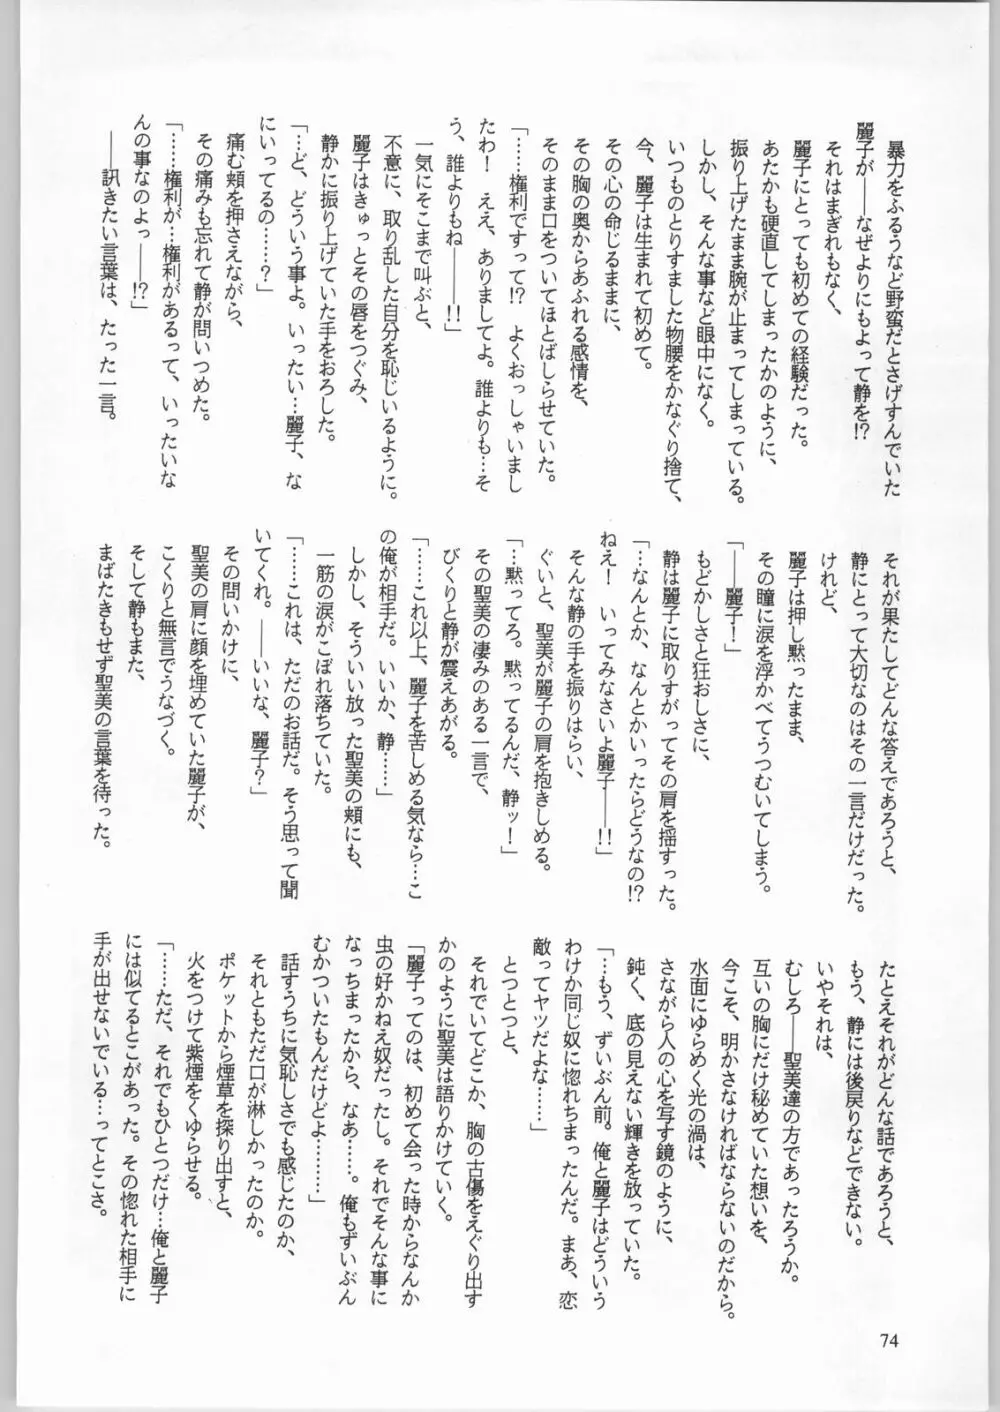 暴力をふるうなど野蛮だとさげすんでいた
麗子が――なぜよりにもよって静を!?
それはまぎれもなく、
麗子にとっても初めての経験だった。
あたかも硬直してしまったかのように、
振り上げたまま腕が止まってしまっている。
しかし、そんな事など眼中になく。
いつものとりすました物腰をかなぐり捨て、
今、麗子は生まれて初めて。
その心の命じるままに、
その胸の奥からあふれる感情を、
そのまま口をついてほとばしらせていた。
「……権利ですって!?　よくおっしゃいまし
たわ！　ええ、ありましてよ。誰よりも…そ
う、誰よりもね――!!」
一気にそこまで叫ぶと、
不意に、取り乱した自分を恥じいるように。
麗子はきゅっとその唇をつぐみ、
静かに振り上げていた手をおろした。
「…ど、どういう事よ。いったい…麗子、な
にいってるの……？」
痛む頬を押さえながら、
その痛みも忘れて静が問いつめた。
「……権利が…権利があるって、いったいな
んの事なのよっ――!?」
――訊きたい言葉は、たった一言。
それが果たしてどんな答えであろうと、
静にとって大切なのはその一言だけだった。
けれど、
麗子は押し黙ったまま、
その瞳に涙を浮かべてうつむいてしまう。
「――麗子！」
もどかしさと狂おしさに、
静は麗子に取りすがってその肩を揺すった。
「…なんとか、なんとかいったらどうなの!?
ねえ！　いってみなさいよ麗子――!!」
そんな静の手を振りはらい、
ぐいと、聖美が麗子の肩を抱きしめる。
「…黙ってろ。黙ってるんだ、静ッ！」
その聖美の凄みのある一言で、
びくりと静が震えあがる。
「……これ以上、麗子を苦しめる気なら…こ
の俺が相手だ。いいか、静……」
しかし、そういい放った聖美の頬にも、
一筋の涙がこぼれ落ちていた。
「……これは、ただのお話だ。そう思って聞
いてくれ。――いいな、麗子？」
その問いかけに、
聖美の肩に顔を埋めていた麗子が、
こくりと無言でうなづく。
そして静もまた、
まばたきもせず聖美の言葉を待った。
たとえそれがどんな話であろうと、
もう、静には後戻りなどできない。
いやそれは、
むしろ――聖美達の方であったろうか。
互いの胸にだけ秘めていた想いを、
今こそ、明かさなければならないのだから。
水面にゆらめく光の渦は、
さながら人の心を写す鏡のように、
鈍く、底の見えない輝きを放っていた。
「…もう、ずいぶん前。俺と麗子はどういう
わけか同じ奴に惚れちまったんだ。まあ、恋
敵ってヤツだよな……」
とつとつと、
それでいてどこか、胸の古傷をえぐり出す
かのように聖美は語りかけていく。
「麗子ってのは、初めて会った時からなんか
虫の好かねえ奴だったし。それでそんな事に
なっちまったから、なあ……。俺もずいぶん
むかついたもんだけどよ………」
話すうちに気恥しさでも感じたのか、
それともただ口が淋しかったのか。
ポケットから煙草を探り出すと、
火をつけて紫煙をくゆらせる。
「……ただ、それでもひとつだけ…俺と麗子
には似てるとこがあった。その惚れた相手に
手が出せないでいる…ってとこさ。
74